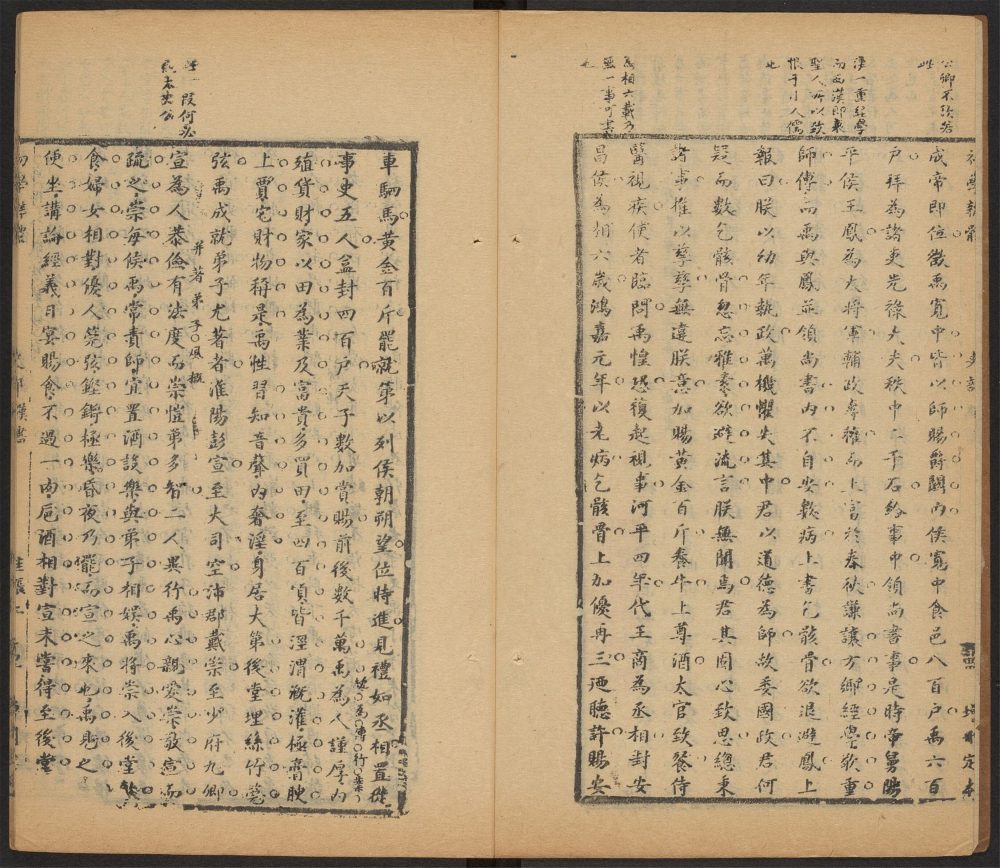 公卿不致若
此
漢一重經學
而西漢即衰
聖人所以致
恨于小人儒
也
為相六載乃
無一事可書
也
成帝即位徵禹寬中皆以師賜爵關內侯寬中食邑八百戶禹六百
戶拜為諸吏光祿大夫秩中二千石給事中領尚書事是時帝舅陽
平侯王鳳為大將軍輔政專權而上富於春秋謙讓方鄉經學敬重
師傅而禹與鳳並領尚書內不自安數病上書乞骸骨欲退避鳳上
報曰朕以幼年執政萬機懼失其中君以道德為師故委國政君何
疑而數乞骸骨忽忘雅素欲避流言朕無聞焉君其固心致思總秉
諸事推以孳孳無違朕意加賜黃金百斤養牛上尊酒太官致餐侍
醫視疾使者臨問禹惶恐復起視事河平四年代王商為丞相封安
昌侯為相六歲鴻嘉元年以老病乞骸骨上加優再三迺聽許賜安
此一段何必
太史公
車駟馬黃金百斤罷就第以列侯朝朔望位特進見禮如丞相置從
事史五人益封四百戶天子數加賞賜前後數千萬禹為人謹厚內
殖貨財家以田為業及富貴多買田至四百頃皆涇渭溉灌極膏腴
上賈它財物稱是禹性習知音聲內奢淫身居大第後堂理絲竹筦
弦禹成就弟子尤著者淮陽彭宣至大司空沛郡戴崇至少府九卿
并著弟子風概
宣為人恭儉有法度而崇愷弟多智二人異行禹心親愛崇敬宣而
疏之崇每候禹常責師宜置酒設樂與弟子相娛禹將崇入後堂飲
食婦女相對優人筦弦鏗鏘極樂昏夜乃罷而宣之來也禹見之
便坐講論經義日宴賜食不過一肉卮酒相對宣未嘗得至後堂